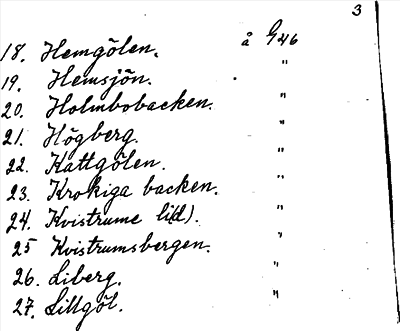 3
18. Hemgölen. å G46
19. Hemsjön. "
20. Holmbobacken. "
21. Högberg. "
22. Kattgölen. "
23. Krokiga backen. "
24. Kvistrume li(d). "
25 Kvistrumsbergen. "
26. Liberg. "
27. Lillgöl. "